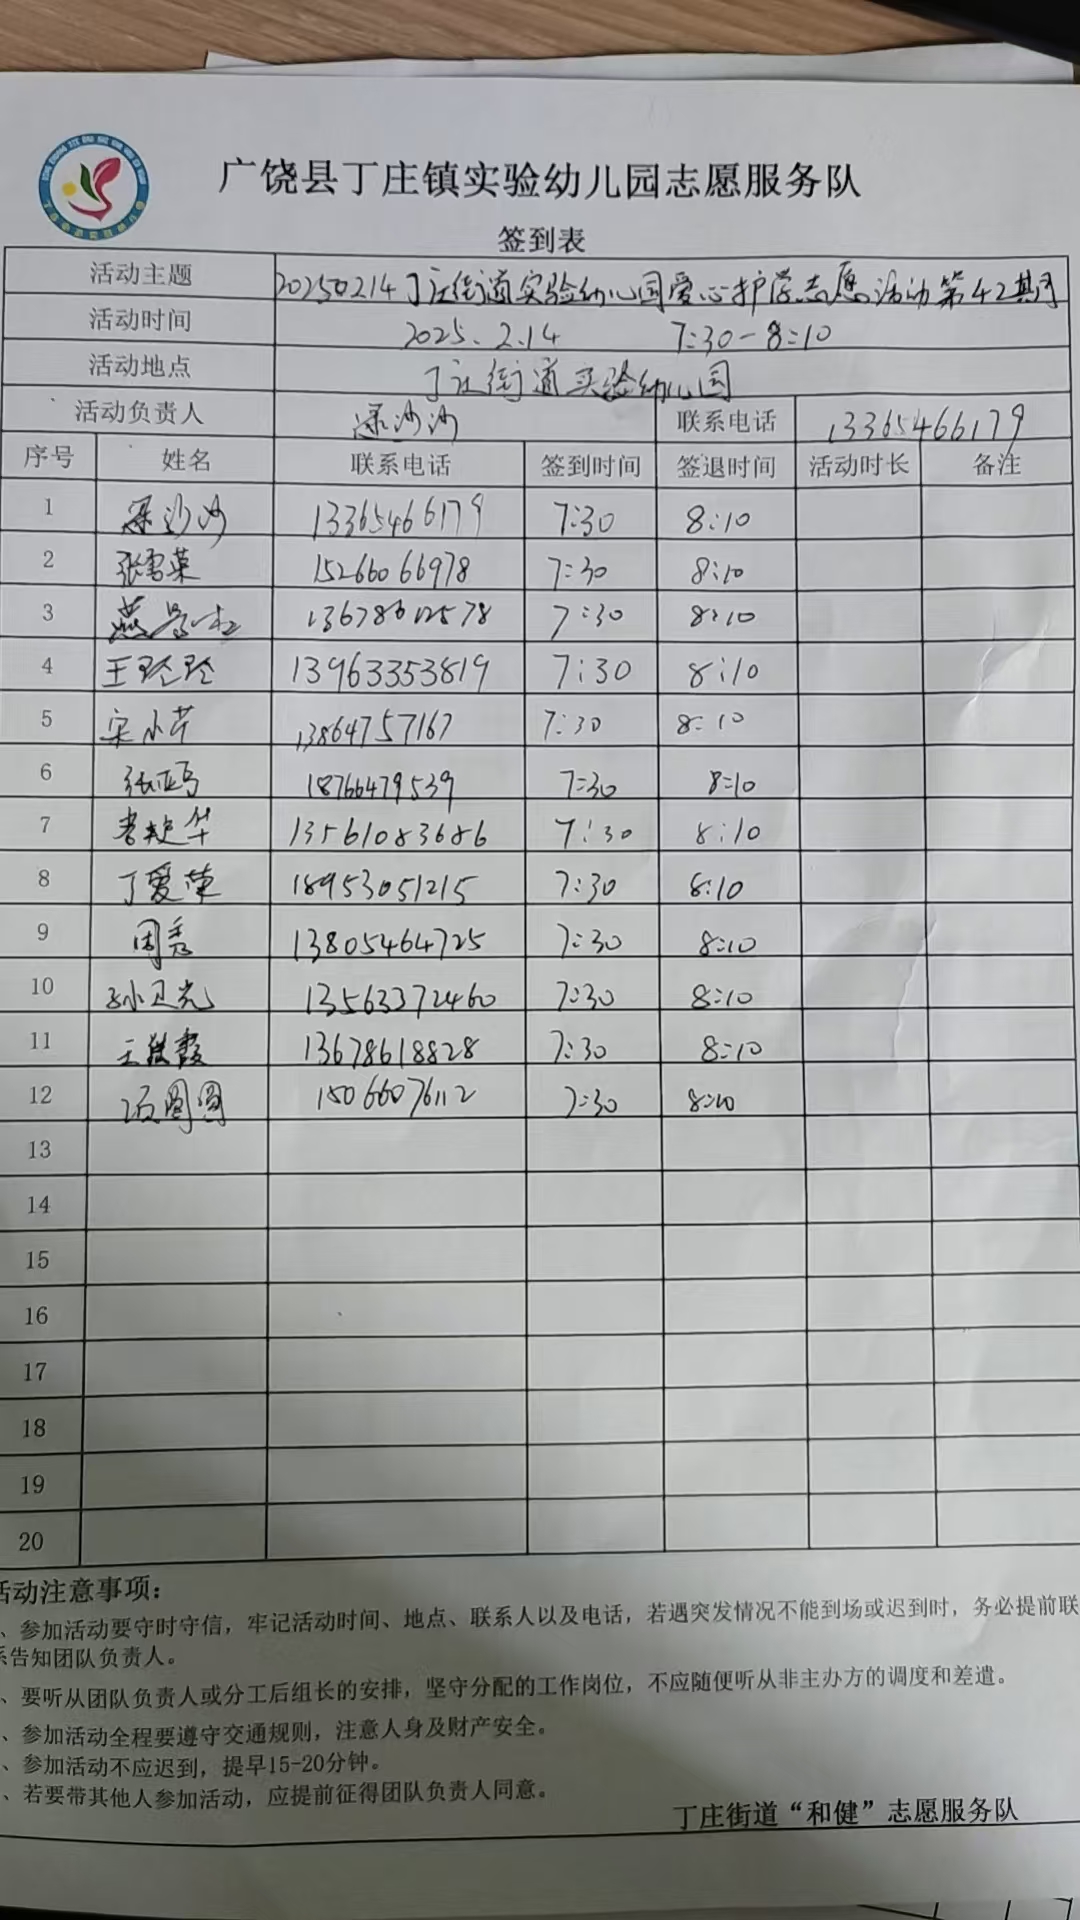 广饶县丁庄镇实验幼儿园志愿服务队
签到表
活动主题 20250214丁庄街道实验幼儿园爱心护学志愿活动第42期
活动时间 2025.2.14 7:30-8:10
活动地点 丁庄街道实验幼儿园
活动负责人 沙沙 联系电话 13365466179
序号 姓名 联系电话 签到时间 签退时间 活动时长 备注
1 沙沙 13365466179 7:30 8:10
2 张雪菜 15266066978 7:30 8:10
3 燕 13678612578 7:30 8:10
4 王玲玲 13963353819 7:30 8:10
5 宋小芹 13864757167 7:30 8:10
6 张亚 18766479539 7:30 8:10
7 华 13561083686 7:30 8:10
8 丁爱荣 18953051215 7:30 8:10
9 周秀 13805464725 7:30 8:10
10 孙卫光 13563372460 7:30 8:10
11 王霞 13678618828 7:30 8:10
12 石圆圆 15066076112 7:30 8:10
13
14
15
16
17
18
19
20
活动注意事项：
、参加活动要守时守信，牢记活动时间、地点、联系人以及电话，若遇突发情况不能到场或迟到时，务必提前联
系告知团队负责人。
、要听从团队负责人或分工后组长的安排，坚守分配的工作岗位，不应随便听从非主办方的调度和差遣。
、参加活动全程要遵守交通规则，注意人身及财产安全。
、参加活动不应迟到，提早15-20分钟。
、若要带其他人参加活动，应提前征得团队负责人同意。
丁庄街道“和健”志愿服务队